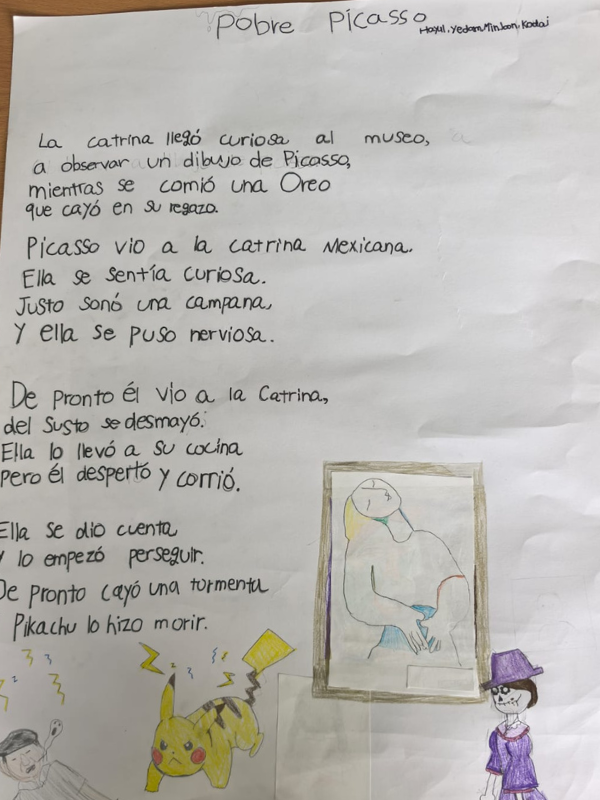 Pobre Picasso
Hayul, Yedam, MinJoon, Kodai
La catrina llegó curiosa al museo,
a observar un dibujo de Picasso,
mientras se comió una Oreo
que cayó en su regazo.
Picasso vio a la catrina Mexicana.
Ella se sentía curiosa.
Justo sonó una campana,
Y ella se puso nerviosa.
De pronto él vio a la Catrina,
del susto se desmayó.
Ella lo llevó a su cocina
Pero él despertó y corrió.
Ella se dio cuenta
Y lo empezó perseguir.
De pronto cayó una tormenta
Pikachu lo hizo morir.